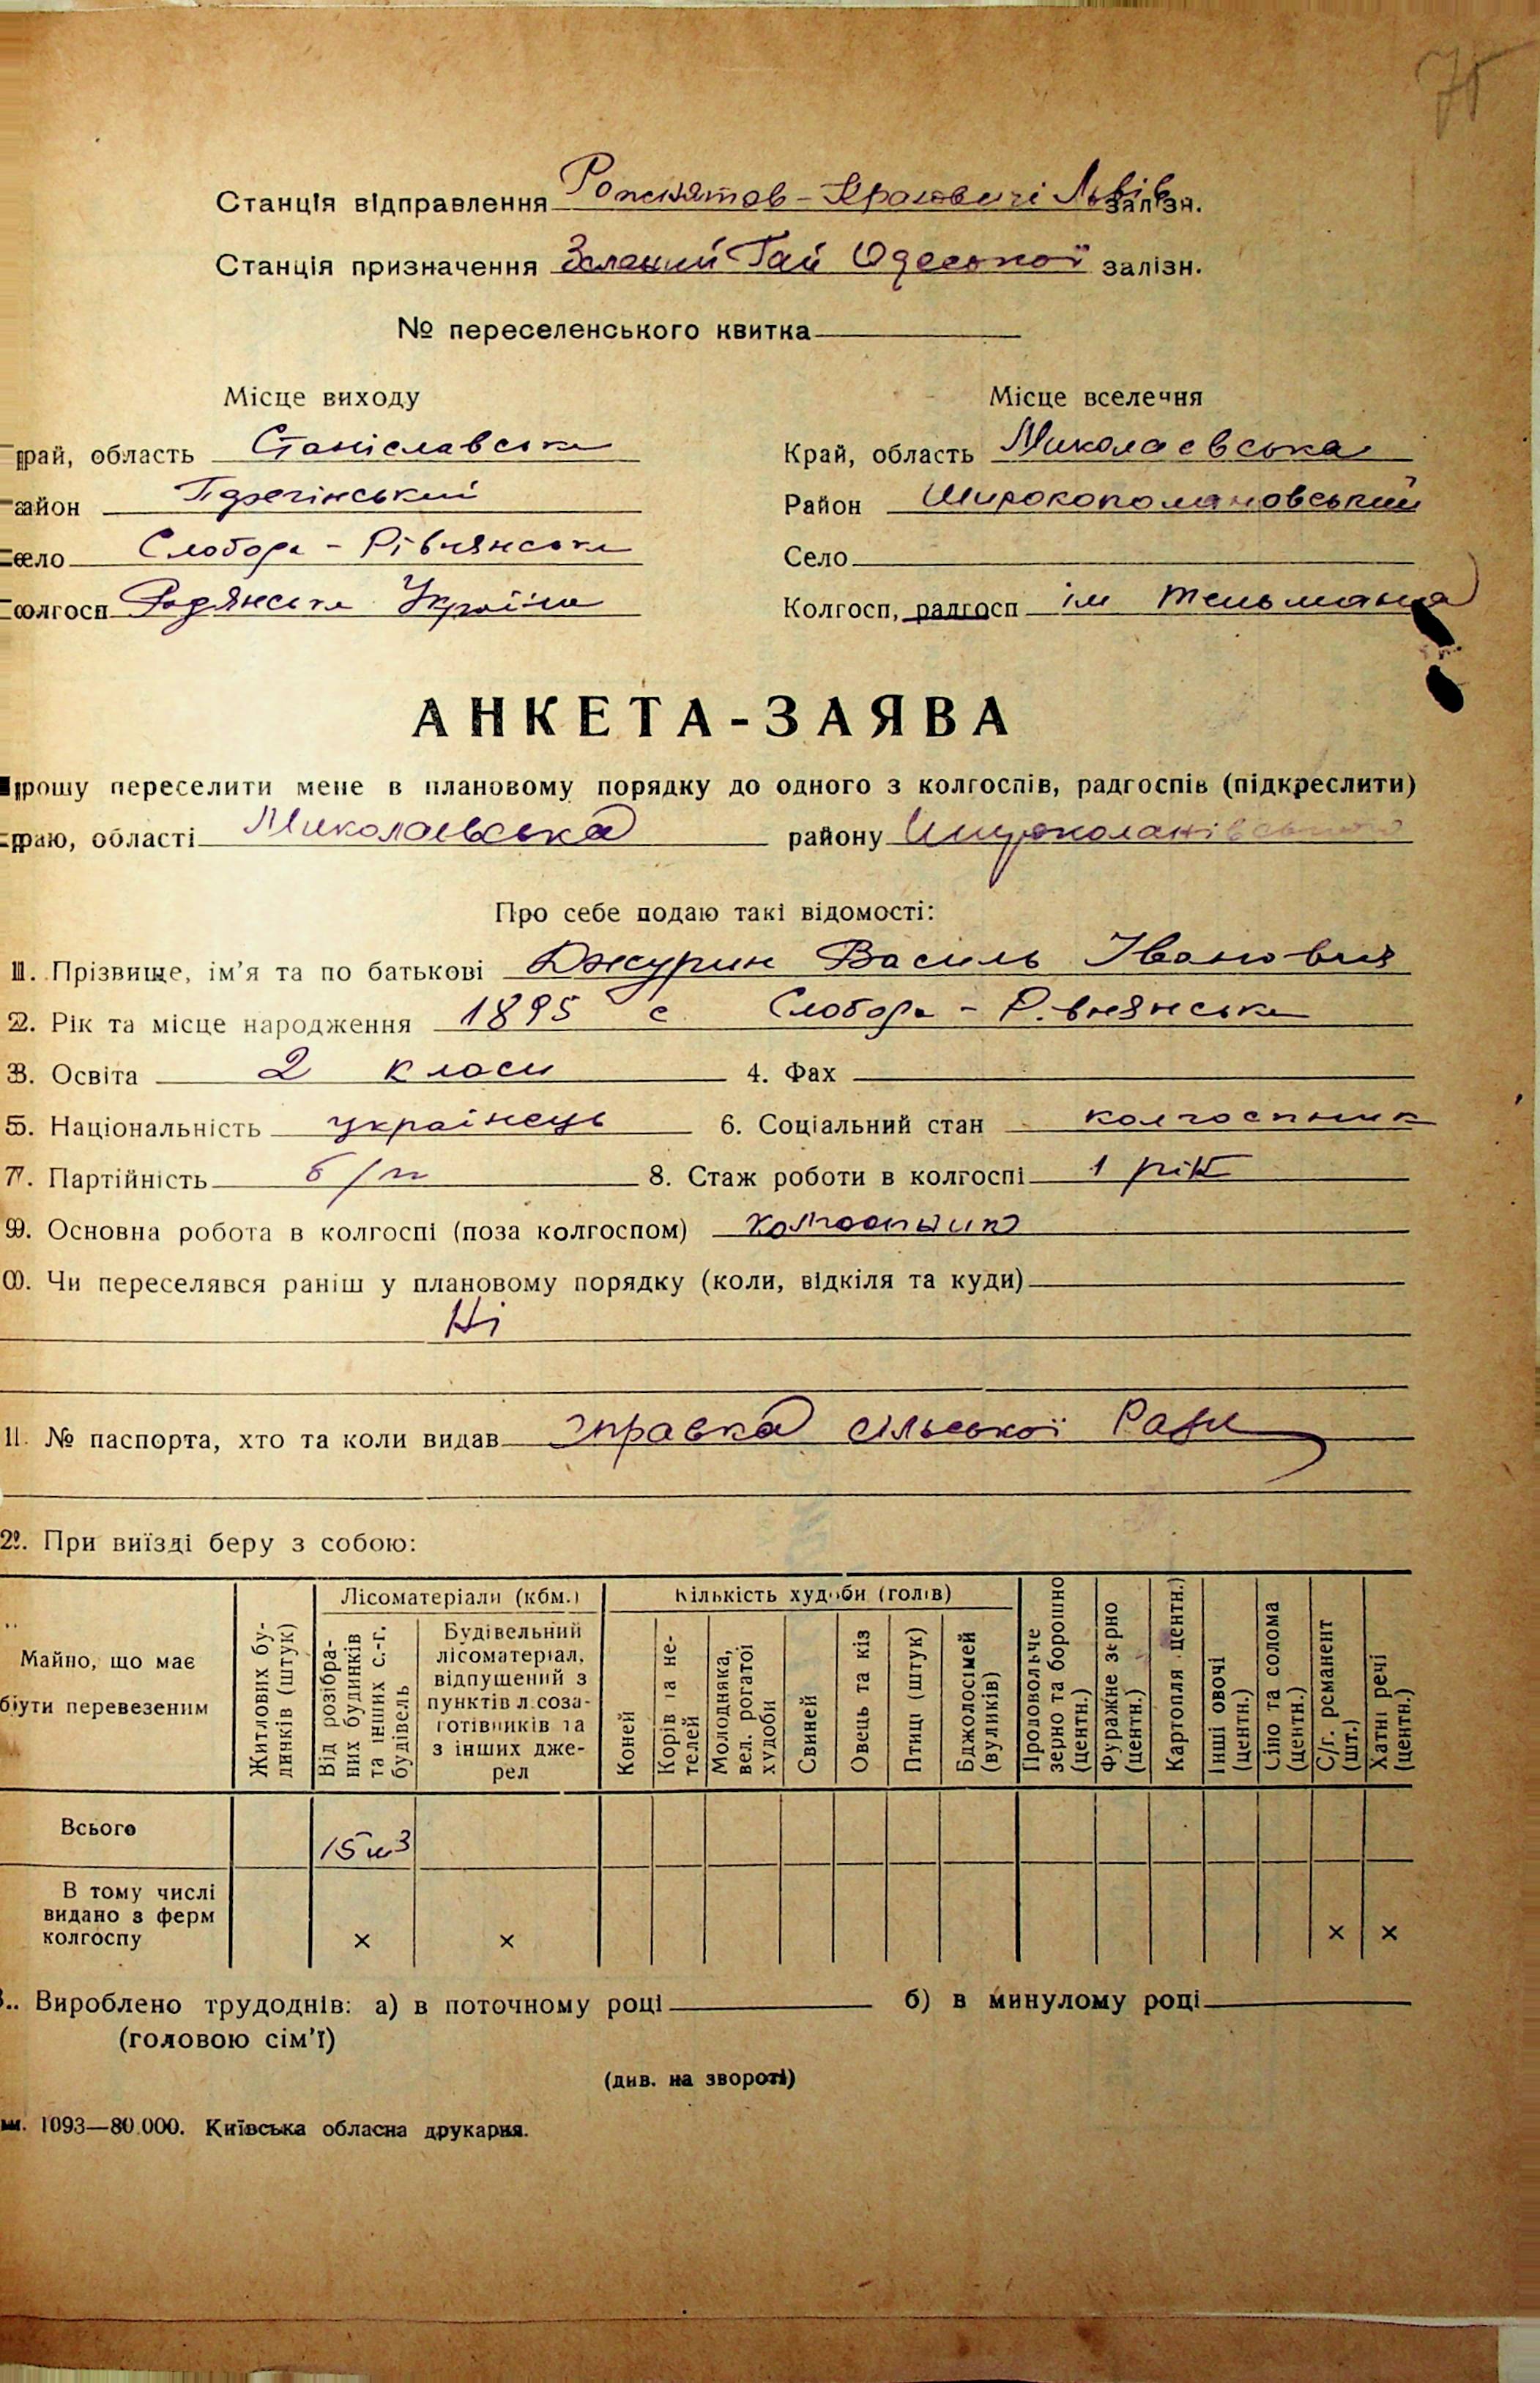 75
Станція відправлення Рожнятов-Креховичі Львів залізн.
Станція призначення Зелений Гай Одеської залізн.
№ переселенського квитка
Місце виходу Місце вселення
край, область Станіславська Край, область Миколаєвська
район Район
село Слобода-Рівнянська Село
колгосп Радянська Україна Колгосп, радгосп ім Тельмана
АНКЕТА-ЗАЯВА
Прошу переселити мене в плановому порядку до одного з колгоспів, радгоспів (підкреслити)
краю, області Миколаевська району Широколанівського
Про себе подаю такі відомості:
1. Прізвище, ім'я та по батькові Джурин Василь Іванович
2. Рік та місце народження 1895 с Слобода-Рівнянська
3. Освіта 2 класи 4. Фах
5. Національність українець 6. Соціальний стан колгоспник
7. Партійність б/п 8. Стаж роботи в колгоспі 1 рік
9. Основна робота в колгоспі (поза колгоспом) колгоспник
0. Чи переселявся раніш у плановому порядку (коли, відкіля та куди)
Ні
11. № паспорта, хто та коли видав справка сільської Ради
2. При виїзді беру з собою:
Майно, що має бути перевезеним
Житлових будинків (штук)
Лісоматеріали (кбм.)
Від розібраних будинків та інших с.-г. будівель
Будівельний лісоматеріал, відпущений з пунктів лісозаготівників та з інших джерел
Кількість худоби (голів)
Коней
Корів та нетелей
Молодняка, вел. рогатої худоби
Свиней
Овець та кіз
Птиці (штук)
Бджолосімей (вуликів)
Продовольче зерно та борошно (центн.)
Фуражне зерно (центн.)
Картопля (центн.)
Інші овочі (центн.)
Сіно та солома (центн.)
С/г. реманент (шт.)
Хатні речі (центн.)
Всього 15 м3
В тому числі видано з ферм колгоспу × × × ×
. Вироблено трудоднів: а) в поточному році б) в минулому році
(головою сім'ї)
(див. на звороті)
1093—80.000. Київська обласна друкарня.